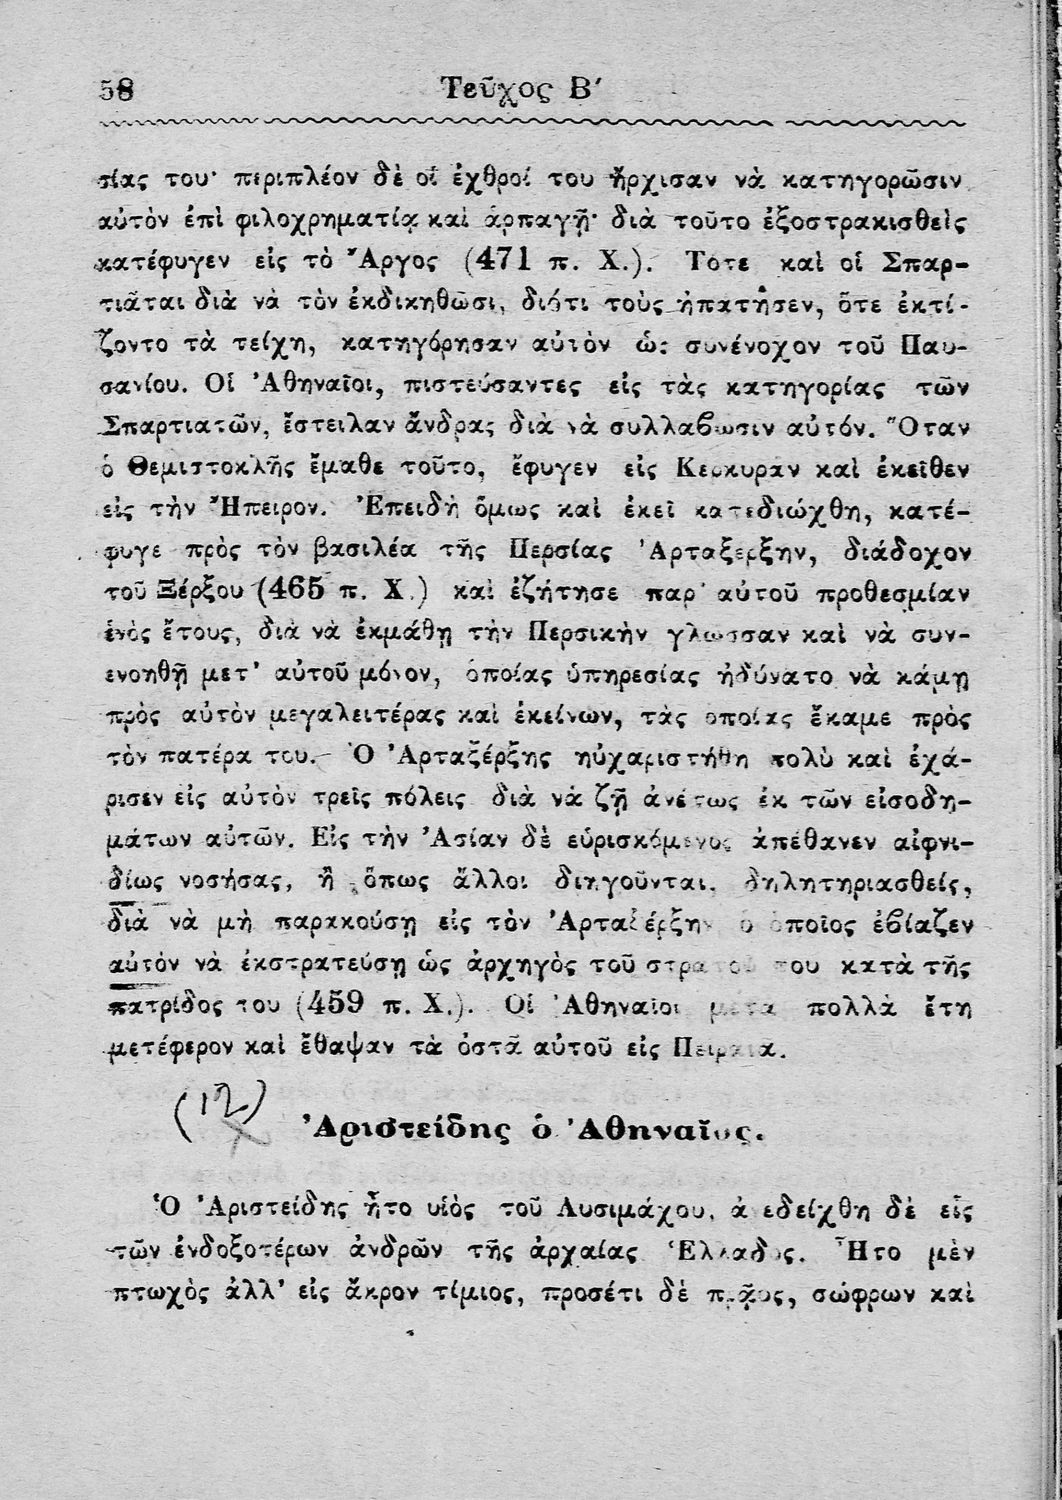 58 Τεῦχος Β΄
σίας του· περιπλέον δὲ οἱ ἐχθροί του ἤρχισαν νὰ κατηγορῶσιν
αὐτὸν ἐπὶ φιλοχρηματίᾳ καὶ ἁρπαγῇ· διὰ τοῦτο ἐξοστρακισθεὶς
κατέφυγεν εἰς τὸ Ἄργος (471 π. Χ.). Τότε καὶ οἱ Σπαρ-
τιᾶται διὰ νὰ τὸν ἐκδικηθῶσι, διότι τοὺς ἠπατήσεν, ὅτε ἐκτί-
ζοντο τὰ τείχη, κατηγόρησαν αὐτὸν ὡς συνένοχον τοῦ Παυ-
σανίου. Οἱ Ἀθηναῖοι, πιστεύσαντες εἰς τὰς κατηγορίας τῶν
Σπαρτιατῶν, ἔστειλαν ἄνδρας διὰ νὰ συλλαβωσιν αὐτόν. Ὅταν
ὁ Θεμιστοκλῆς ἔμαθε τοῦτο, ἔφυγεν εἰς Κερκυραν καὶ ἐκεῖθεν
εἰς τὴν Ἤπειρον. Ἐπειδὴ ὅμως καὶ ἐκεῖ κατεδιώχθη, κατέ-
φυγε πρὸς τὸν βασιλέα τῆς Περσίας Ἀρταξερξην, διάδοχον
τοῦ Ξέρξου (465 π. Χ.) καὶ ἐζήτησε παρ' αὐτοῦ προθεσμίαν
ἑνὸς ἔτους, διὰ νὰ ἐκμάθῃ τὴν Περσικὴν γλωσσαν καὶ νὰ συν-
ενοηθῇ μετ' αὐτοῦ μόνον, ὁποίας ὑπηρεσίας ἠδύνατο νὰ κάμῃ
πρὸς αὐτὸν μεγαλειτέρας καὶ ἐκείνων, τὰς οποίας ἔκαμε πρὸς
τὸν πατέρα του.— Ὁ Ἀρταξέρξης ηὐχαριστήθη πολὺ καὶ ἐχά-
ρισεν εἰς αὐτὸν τρεῖς πόλεις διὰ νὰ ζῇ ἀνέτως ἐκ τῶν εἰσοδη-
μάτων αὐτῶν. Εἰς τὴν Ἀσίαν δὲ εὑρισκόμενος ἀπέθανεν αἰφνι-
δίως νοσήσας, ἢ, ὅπως ἄλλοι διηγοῦνται, δηλητηριασθείς,
διὰ νὰ μὴ παρακούσῃ εἰς τὸν Ἀρταξέρξην ὁ ὁποῖος ἐβίαζεν
αὐτὸν νὰ ἐκστρατεύσῃ ὡς ἀρχηγὸς τοῦ στρατοῦ του κατὰ τῆς
πατρίδος του (459 π. Χ.). Οἱ Ἀθηναῖοι μετα πολλὰ ἔτη
μετέφερον καὶ ἔθαψαν τὰ ὀστᾶ αὐτοῦ εἰς Πειραια.
(12)
Ἀριστείδης ὁ Ἀθηναῖος.
Ὁ Ἀριστείδης ἦτο υἱὸς τοῦ Λυσιμάχου, ἀνεδείχθη δὲ εἷς
τῶν ἐνδοξοτέρων ἀνδρῶν τῆς ἀρχαίας Ἑλλαδος. Ἦτο μὲν
πτωχὸς ἀλλ' εἰς ἄκρον τίμιος, προσέτι δὲ πρᾷος, σώφρων καὶ